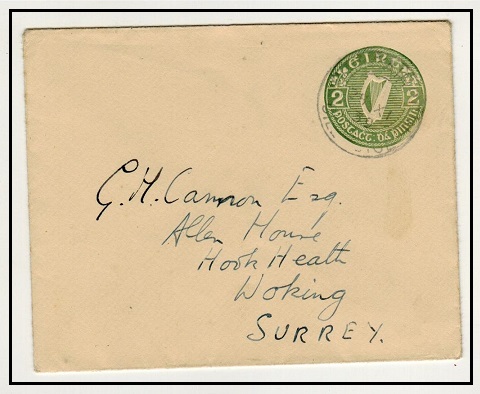 EIRE
2 2
POSTAGE. DÁ PINGIN
G. H. Cameron Esq.
Allen House
Hook Heath
Woking
SURREY.